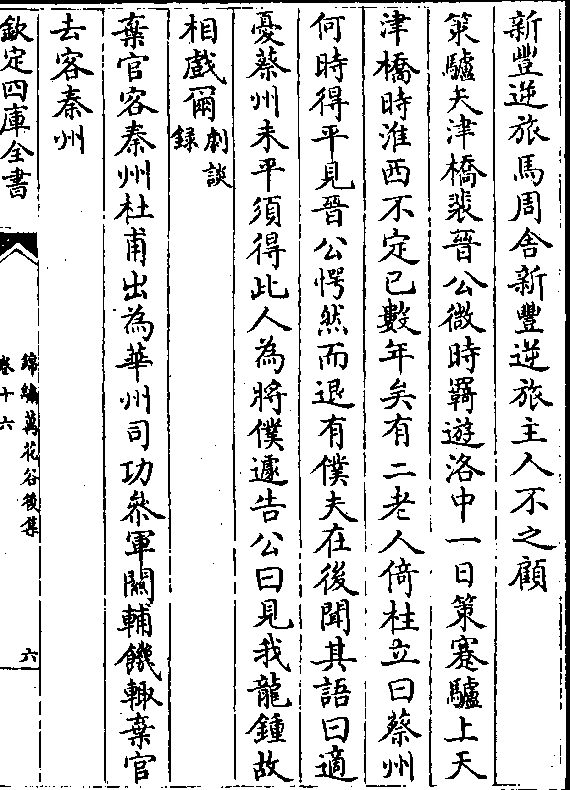 新豐逆旅馬周舎新豐逆旅主人不之顧
策驢天津橋裴晉公微時羇遊洛中一日策蹇驢上天
津橋時淮西不定已數年矣有二老人倚柱立曰蔡州
何時得平見晉公愕然而退有僕夫在後聞其語曰適
憂蔡州未平須得此人為將僕遽告公曰見我龍鍾故
相戲爾劇談錄
棄官客秦州杜甫出為華州司功叅軍關輔饑輙棄官
去客秦州
欽定四庫全書
錦繡萬花谷後集
卷十六
六